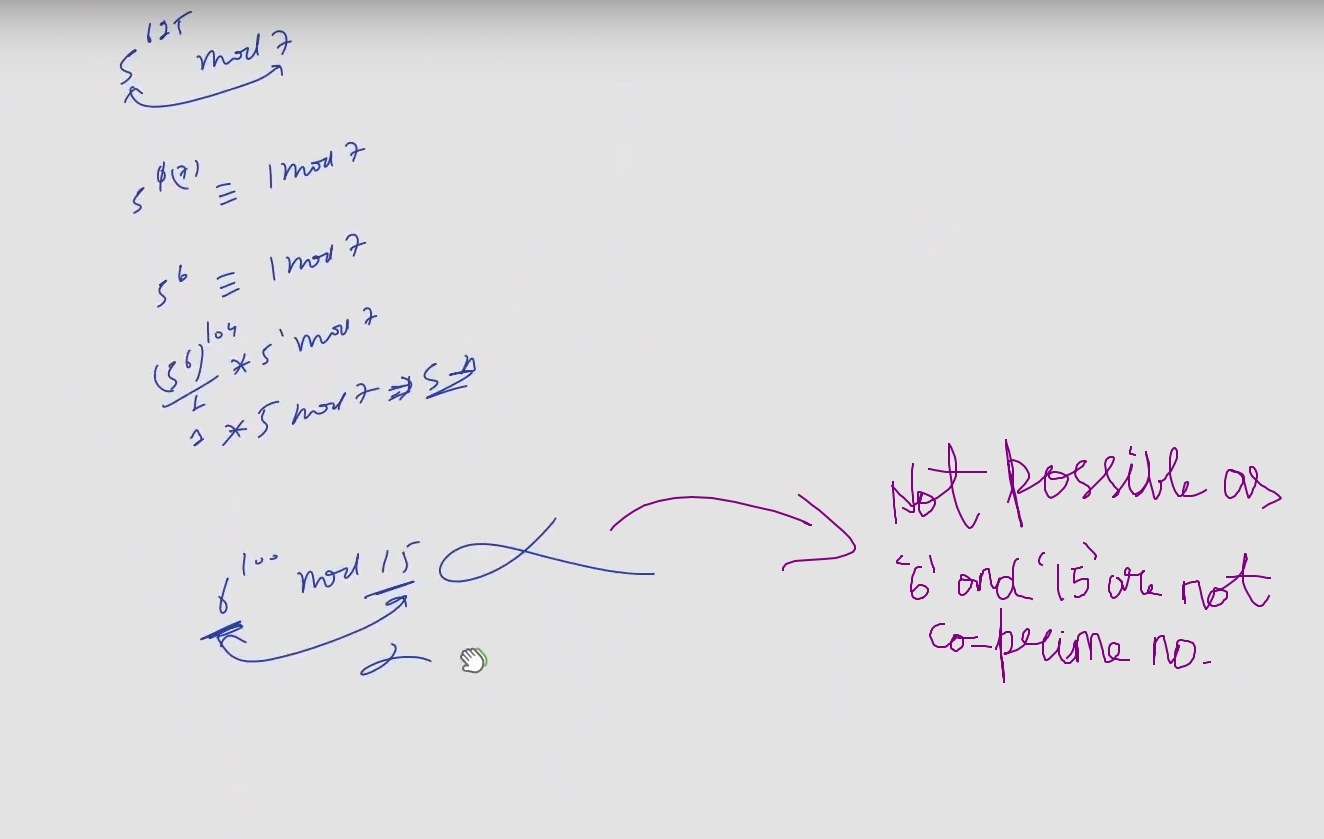 5^625 mod 7
5^φ(7) ≡ 1 mod 7
5^6 ≡ 1 mod 7
(5^6)^104 * 5^1 mod 7
1
1 * 5 mod 7 ⇒ 5
6^100 mod 15
Not possible as
'6' and '15' are not
co-prime no.